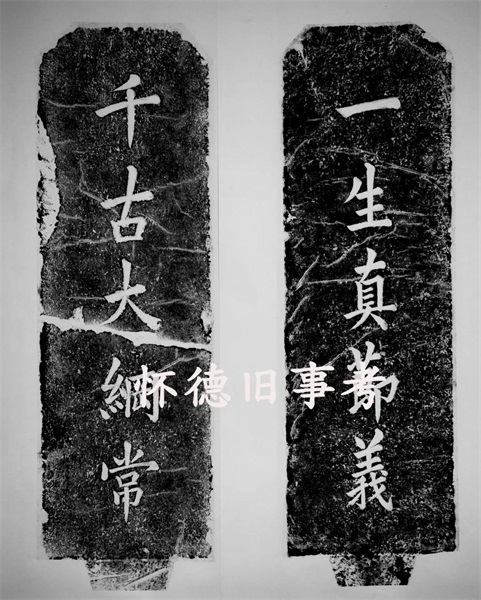 一生真莭義
千古大綱常
怀德旧事